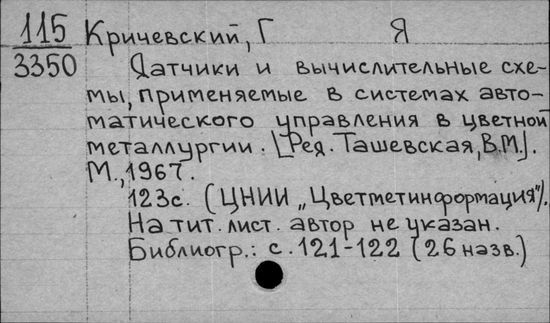 115 Кричевский, Г Я
3350 Датчики и вычислительные схе-
мы, применяемые в системах авто-
матического управления в цветной
металлургии. [Ред. Ташевская, В.М.].
М., 1967.
123с. (ЦНИИ „Цветметинформация").
На тит. лист. автор не указан.
Библиогр.: с. 121-122 (26 назв.)